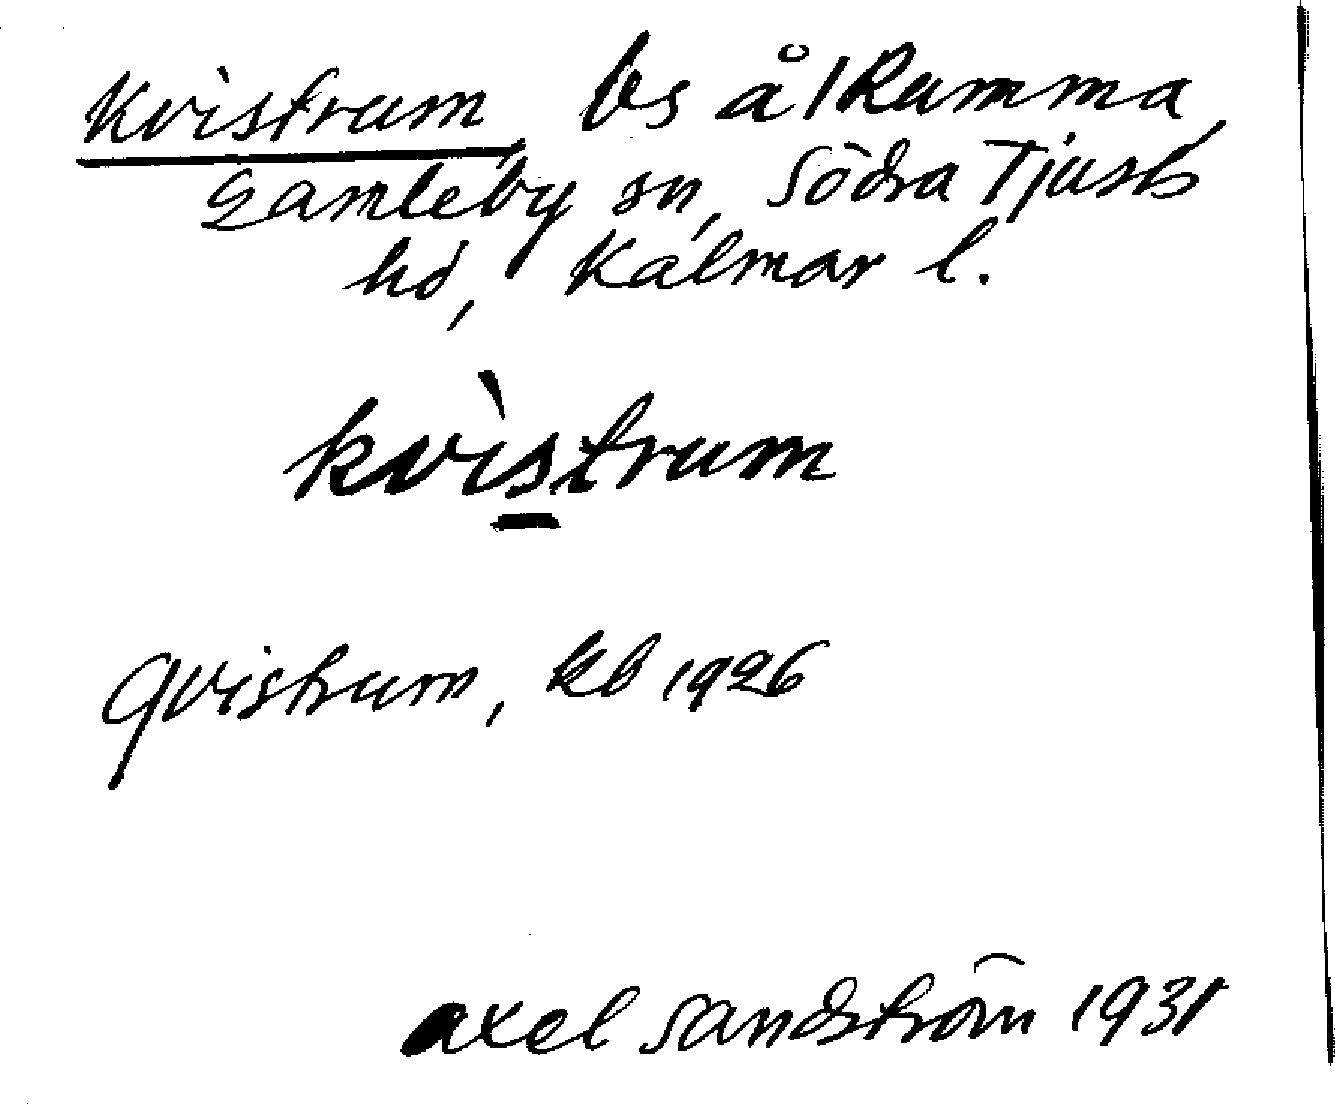 Kvistrum, bs å/Rumma,
Gamleby sn, Södra Tjusts
hd, Kalmar l.
kvìstrum
Qvistrum, kb 1926
Axel Sandström 1931